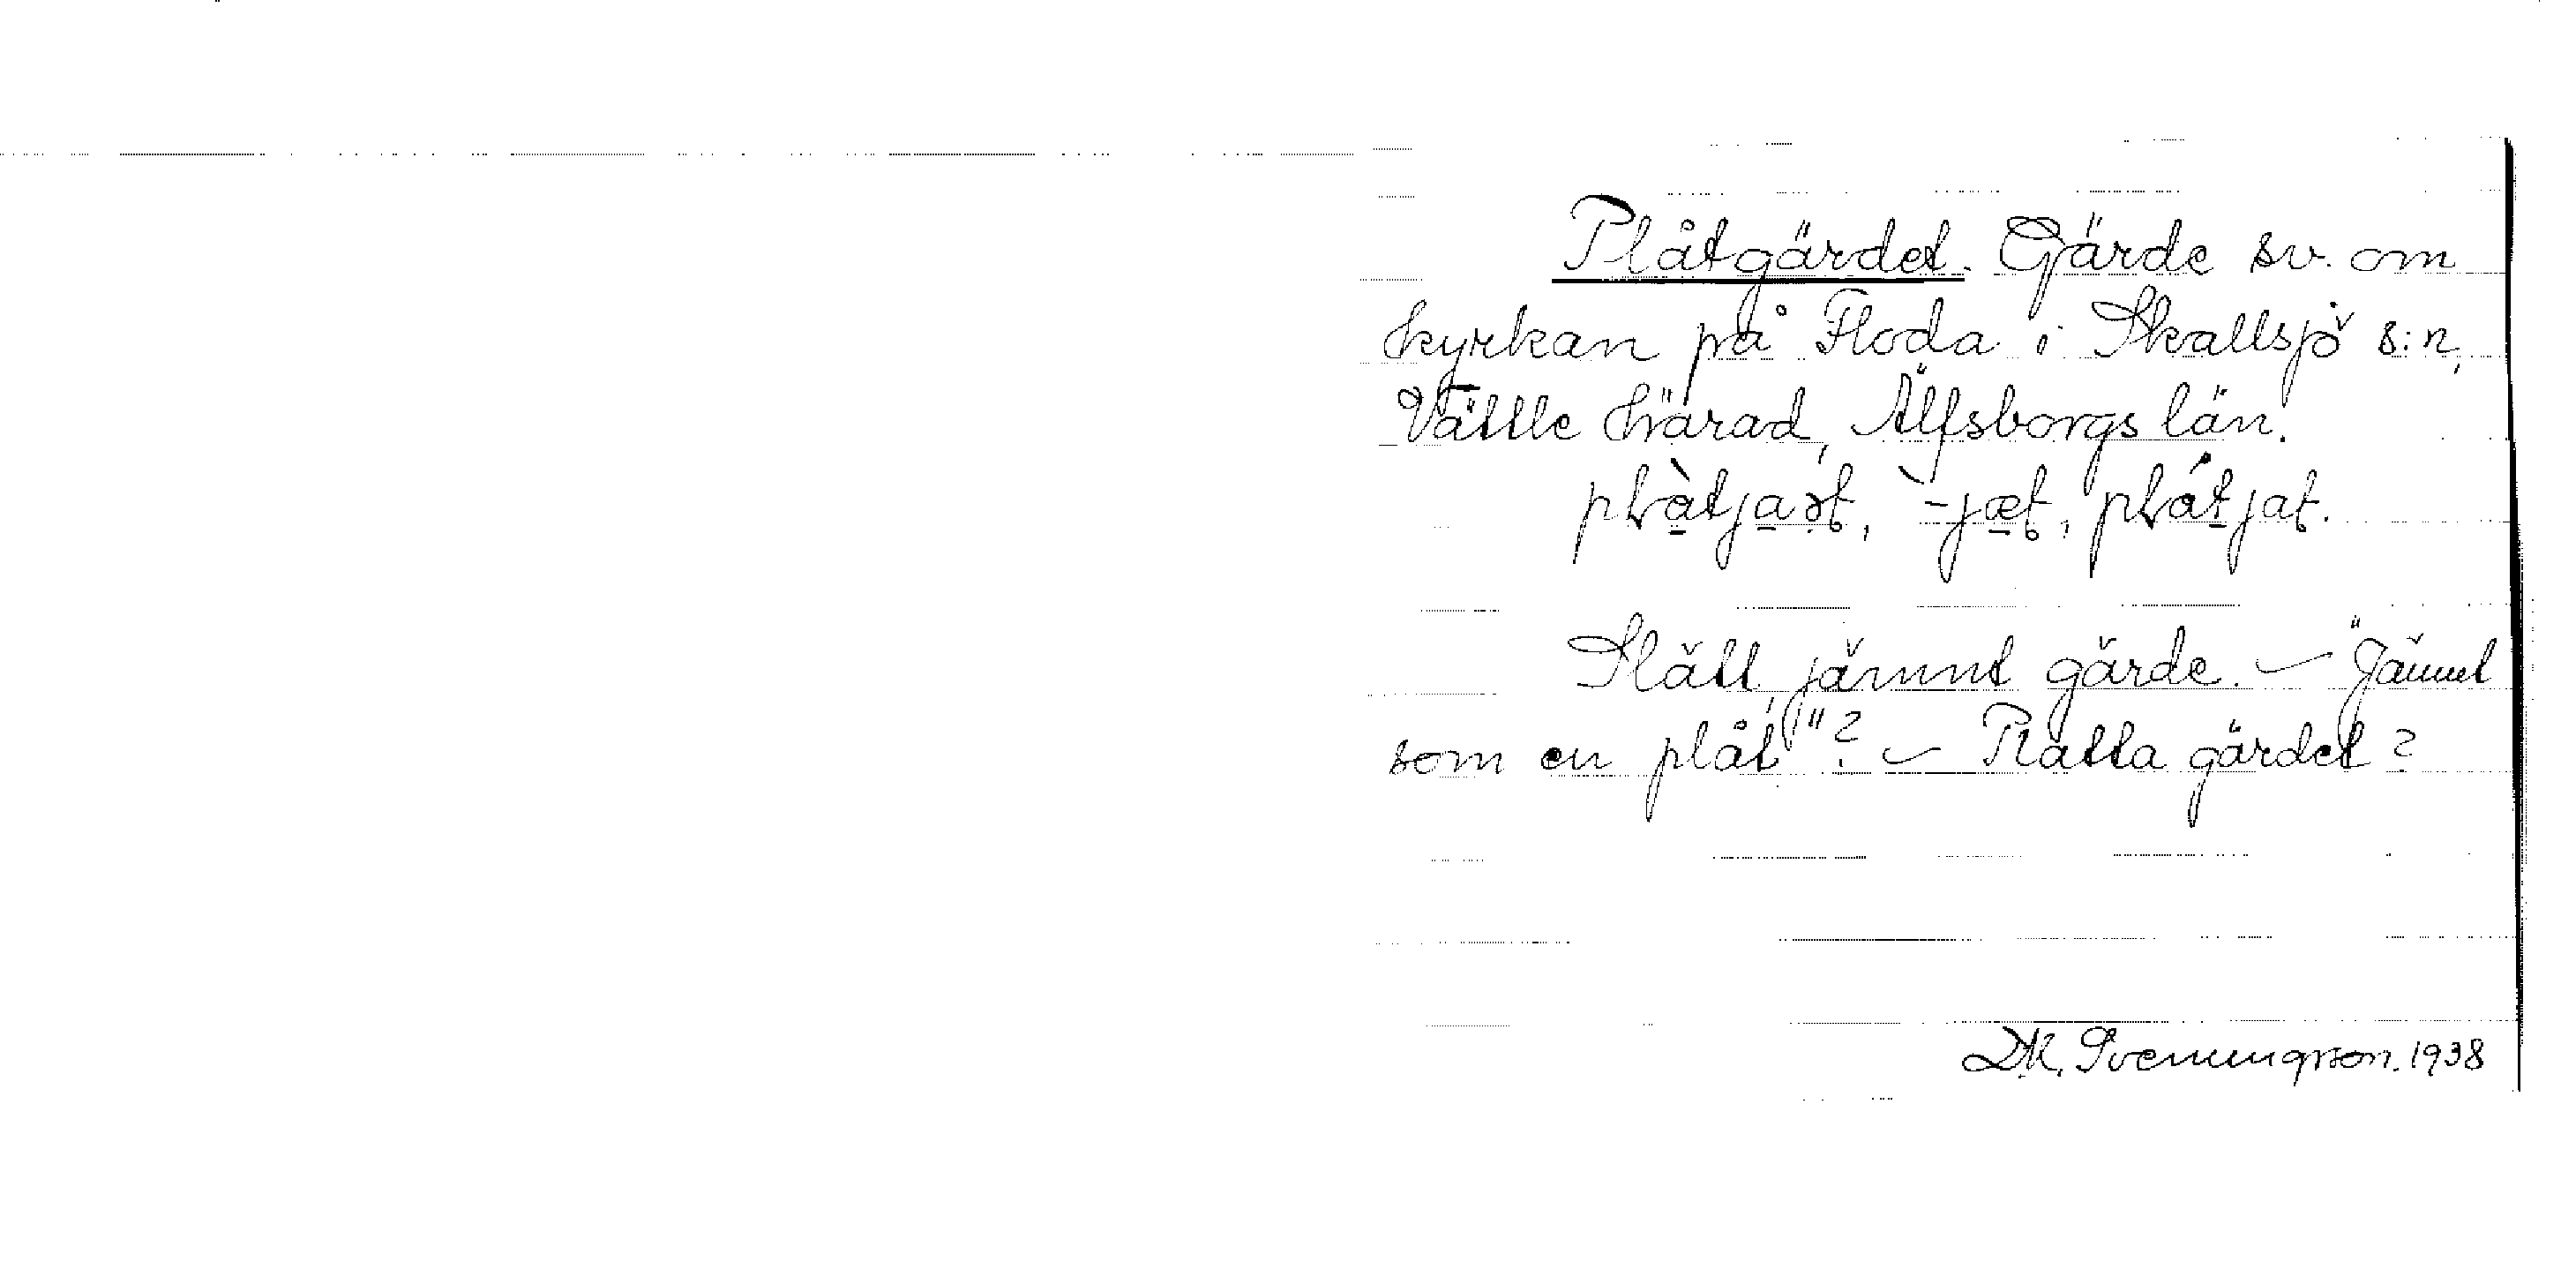 Plåtgärdet. Gärde sv. om
kyrkan på Floda i Skallsjö s:n,
Vättle härad, Älfsborgs län.
plàtjaət, `-jæt, plátjat.
Slätt, jämnt gärde. – "Jämnt
som en plåt"? – Platta gärdet?
D.K. Svenungson. 1938